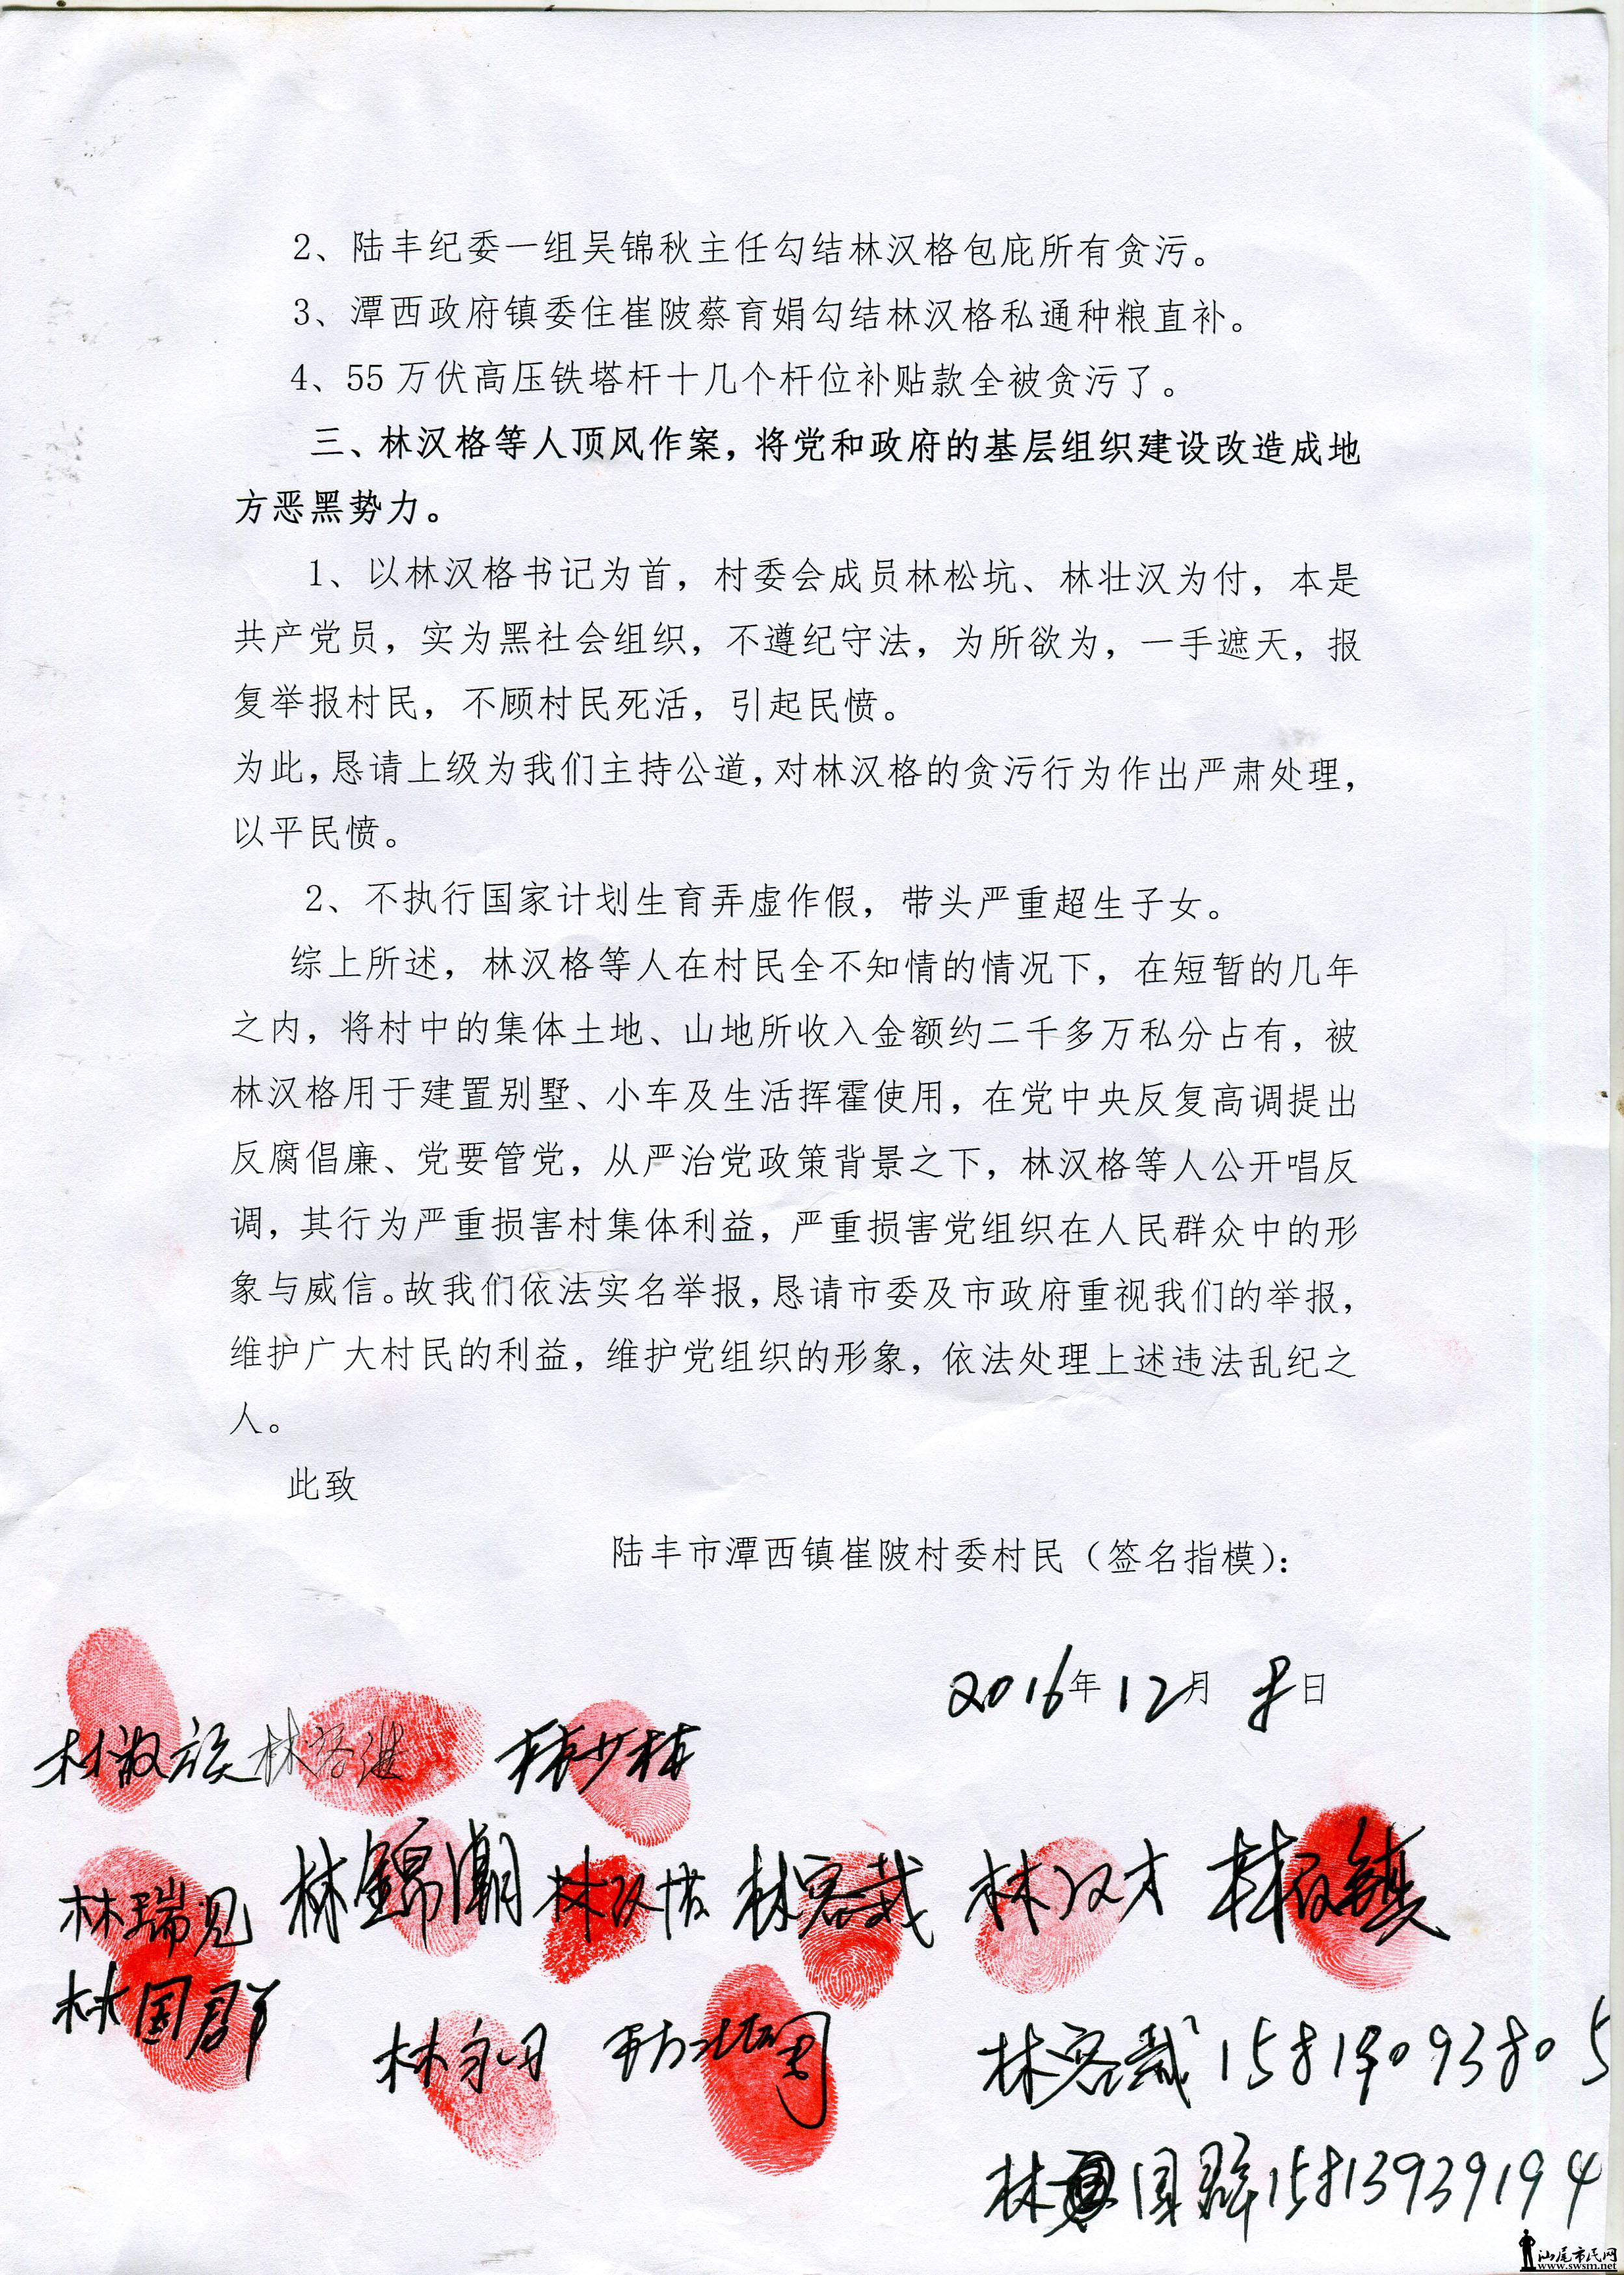 2、陆丰纪委一组吴锦秋主任勾结林汉格包庇所有贪污。
3、潭西政府镇委住崔陂蔡育娟勾结林汉格私通种粮直补。
4、55万伏高压铁塔杆十几个杆位补贴款全被贪污了。
三、林汉格等人顶风作案，将党和政府的基层组织建设改造成地
方恶黑势力。
1、以林汉格书记为首，村委会成员林松坑、林壮汉为付，本是
共产党员，实为黑社会组织，不遵纪守法，为所欲为，一手遮天，报
复举报村民，不顾村民死活，引起民愤。
为此，恳请上级为我们主持公道，对林汉格的贪污行为作出严肃处理，
以平民愤。
2、不执行国家计划生育弄虚作假，带头严重超生子女。
综上所述，林汉格等人在村民全不知情的情况下，在短暂的几年
之内，将村中的集体土地、山地所收入金额约二千多万私分占有，被
林汉格用于建置别墅、小车及生活挥霍使用，在党中央反复高调提出
反腐倡廉、党要管党，从严治党政策背景之下，林汉格等人公开唱反
调，其行为严重损害村集体利益，严重损害党组织在人民群众中的形
象与威信。故我们依法实名举报，恳请市委及市政府重视我们的举报，
维护广大村民的利益，维护党组织的形象，依法处理上述违法乱纪之
人。
此致
陆丰市潭西镇崔陂村委村民（签名指模）：
2016年12月8日
林少林
林瑞见 林錦潮 林容哉 林汉才 林汉镇
林国群 林永丹
林容哉 15819093805
林国群 15813939194
汕尾市民网
www.swsm.net